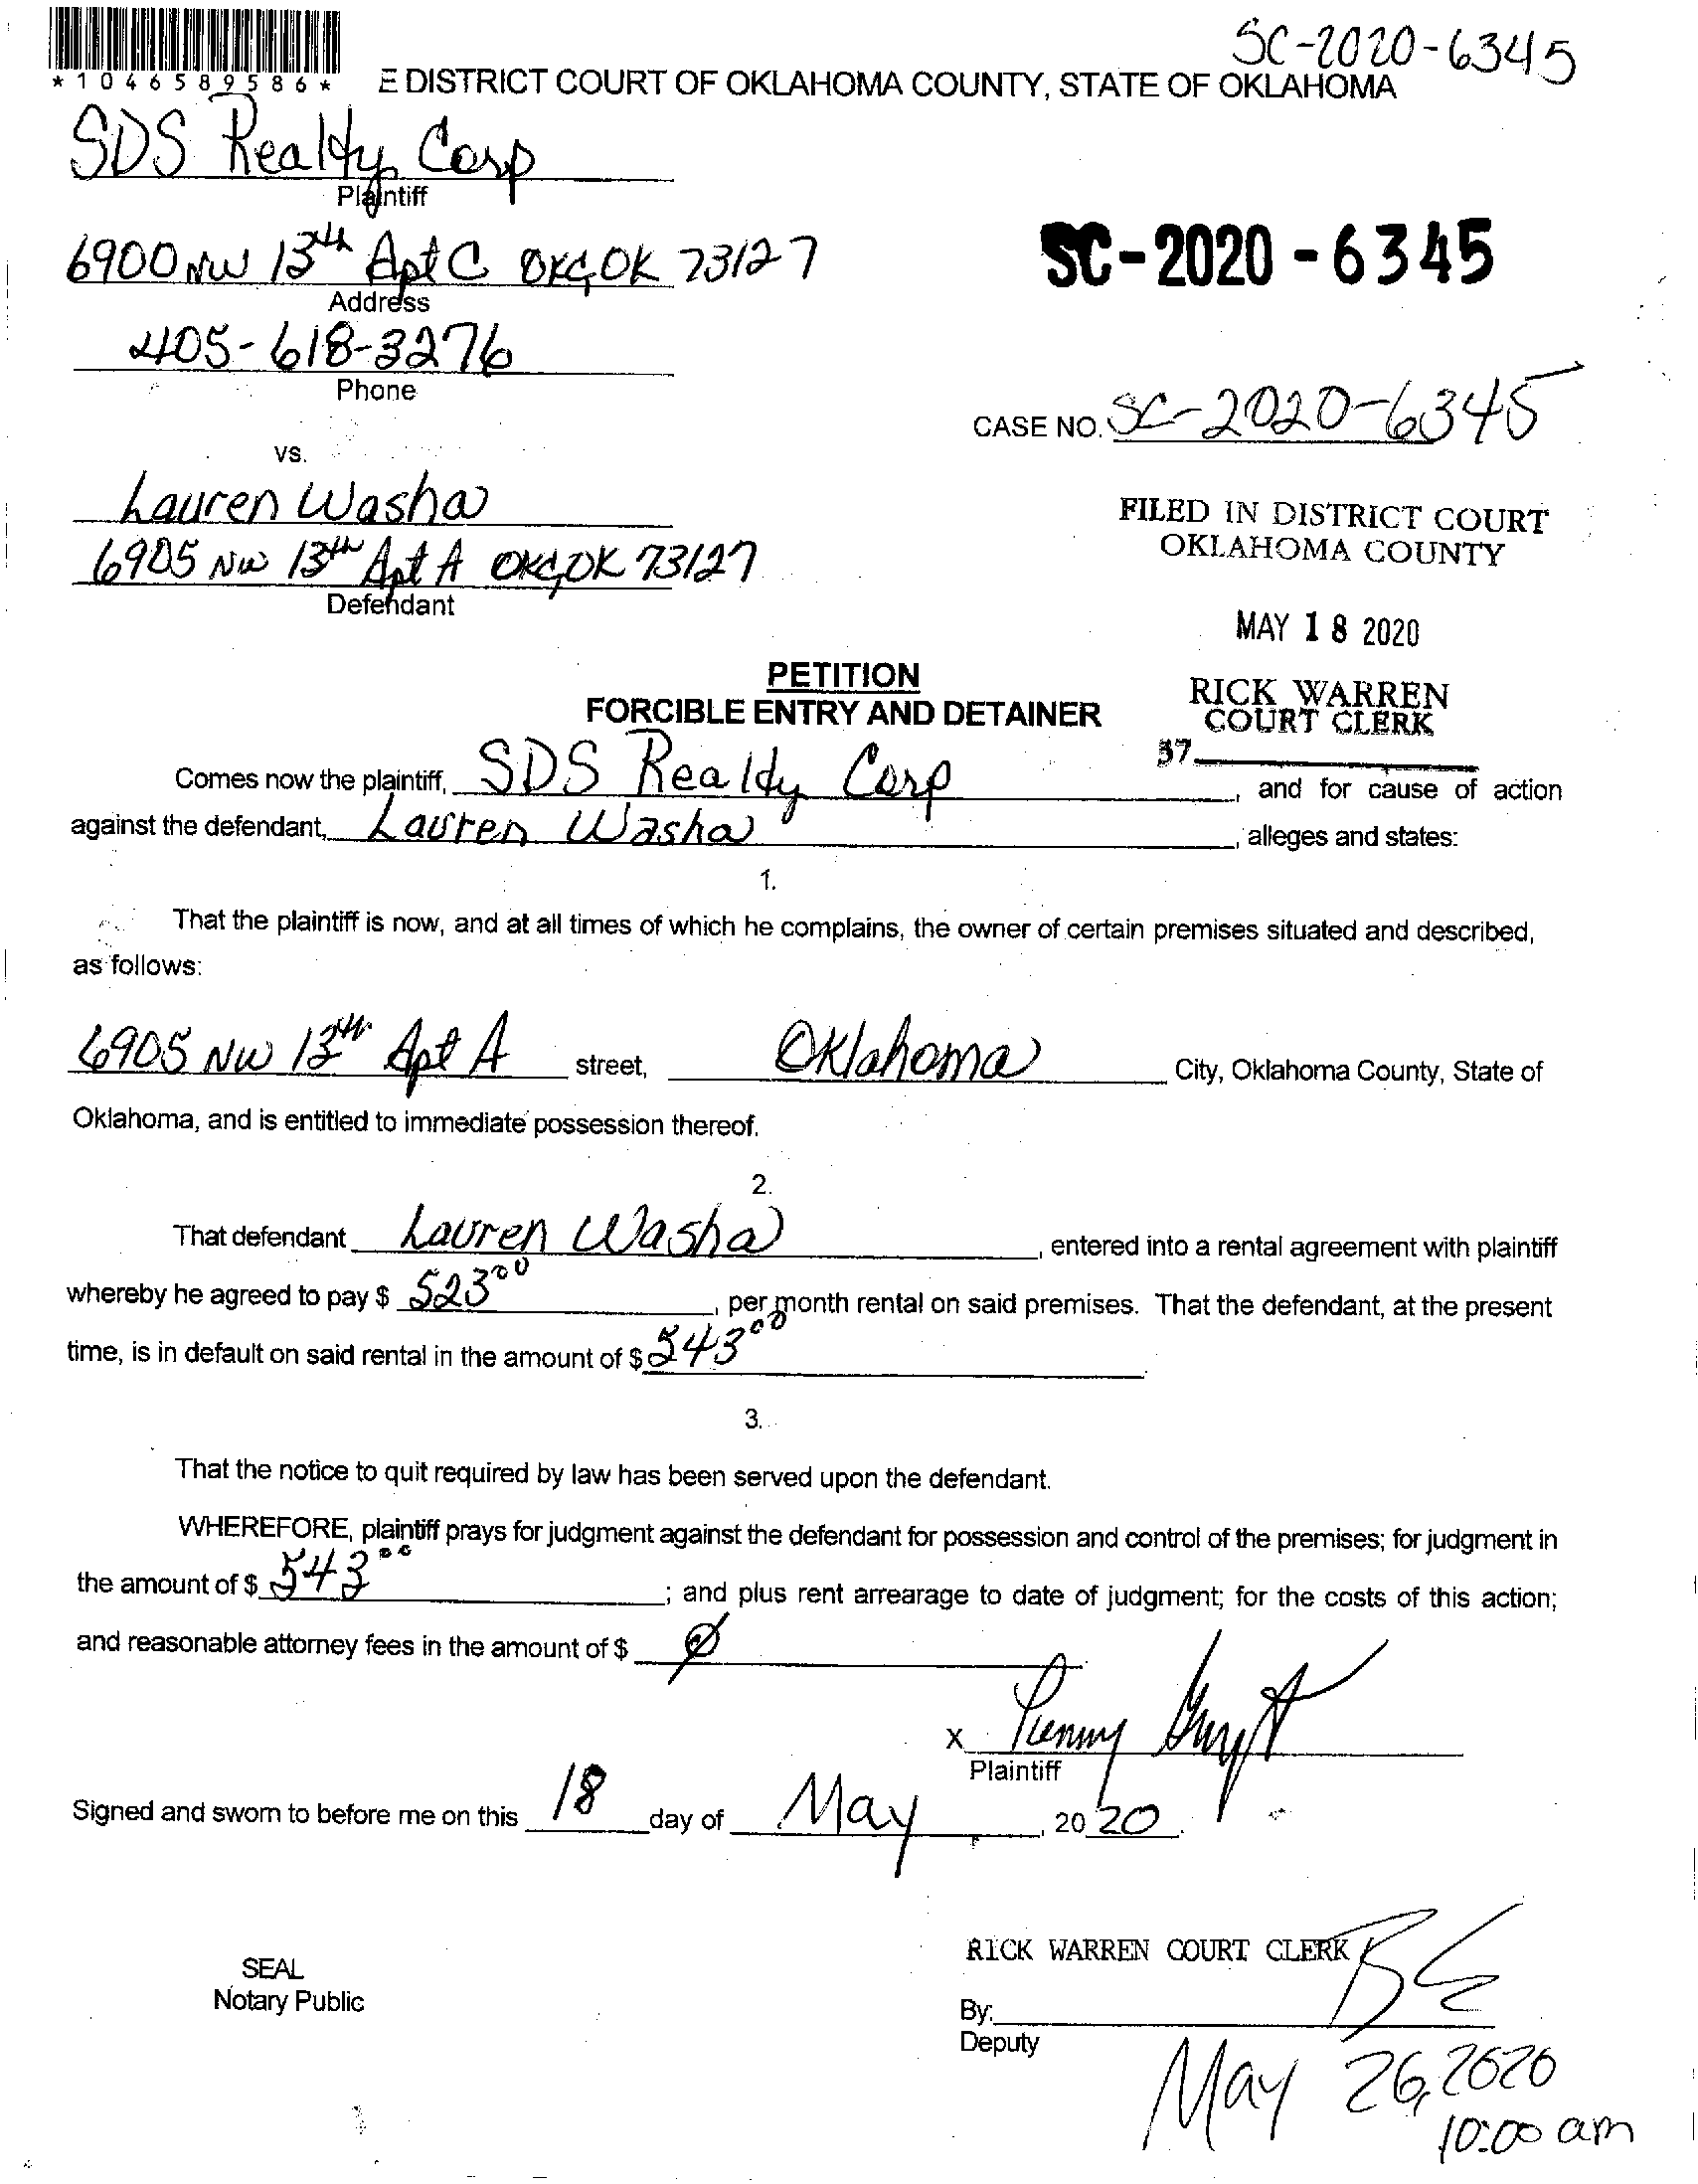 SC-2020-6345
*1046589586*
E DISTRICT COURT OF OKLAHOMA COUNTY, STATE OF OKLAHOMA
SDS Realty Corp
Plaintiff
6900 NW 13th Apt C OKC, OK 73127
Address
SC-2020-6345
405-618-3276
Phone
CASE NO. SC-2020-6345
vs.
Lauren Washa
6905 NW 13th Apt A OKC, OK 73127
Defendant
FILED IN DISTRICT COURT
OKLAHOMA COUNTY
MAY 18 2020
RICK WARREN
COURT CLERK
37
PETITION
FORCIBLE ENTRY AND DETAINER
Comes now the plaintiff, SDS Realty Corp, and for cause of action
against the defendant, Lauren Washa, alleges and states:
1.
That the plaintiff is now, and at all times of which he complains, the owner of certain premises situated and described,
as follows:
6905 NW 13th Apt A street, Oklahoma City, Oklahoma County, State of
Oklahoma, and is entitled to immediate possession thereof.
2.
That defendant Lauren Washa, entered into a rental agreement with plaintiff
whereby he agreed to pay $ 523.00, per month rental on said premises. That the defendant, at the present
time, is in default on said rental in the amount of $ 543.00
3.
That the notice to quit required by law has been served upon the defendant.
WHEREFORE, plaintiff prays for judgment against the defendant for possession and control of the premises; for judgment in
the amount of $ 543.00; and plus rent arrearage to date of judgment; for the costs of this action;
and reasonable attorney fees in the amount of $ Ø
X Penny
Plaintiff
Signed and sworn to before me on this 18 day of May, 2020.
RICK WARREN COURT CLERK
SEAL
Notary Public
By:
Deputy
May 26, 2020
10:00 am